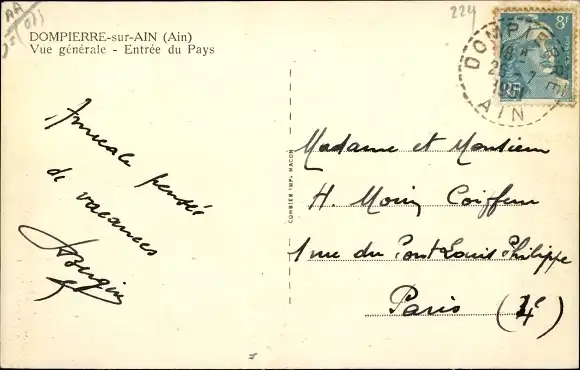 AA
224
DOMPIERRE-sur-AIN (Ain)
Vue générale - Entrée du Pays
8f
POSTES
DOMPIERRE
18 H
25 - 7
1951
AIN
RF
Amicale pensée
de vacances
COMBIER IMP. MACON
Madame et Monsieur
H. Coiffeur
1 rue du Pont Louis Philippe
Paris (4e)